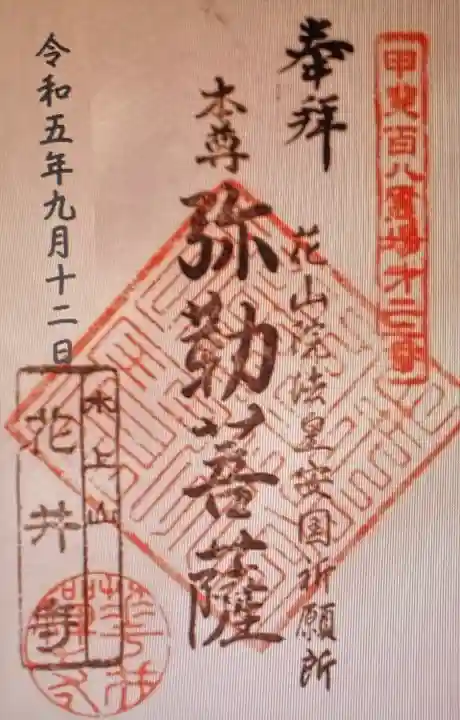 甲斐百八霊場
奉拝
花山院法皇安国祈願所
本尊
弥勒菩薩
令和五年九月十二日
水上山
花井寺